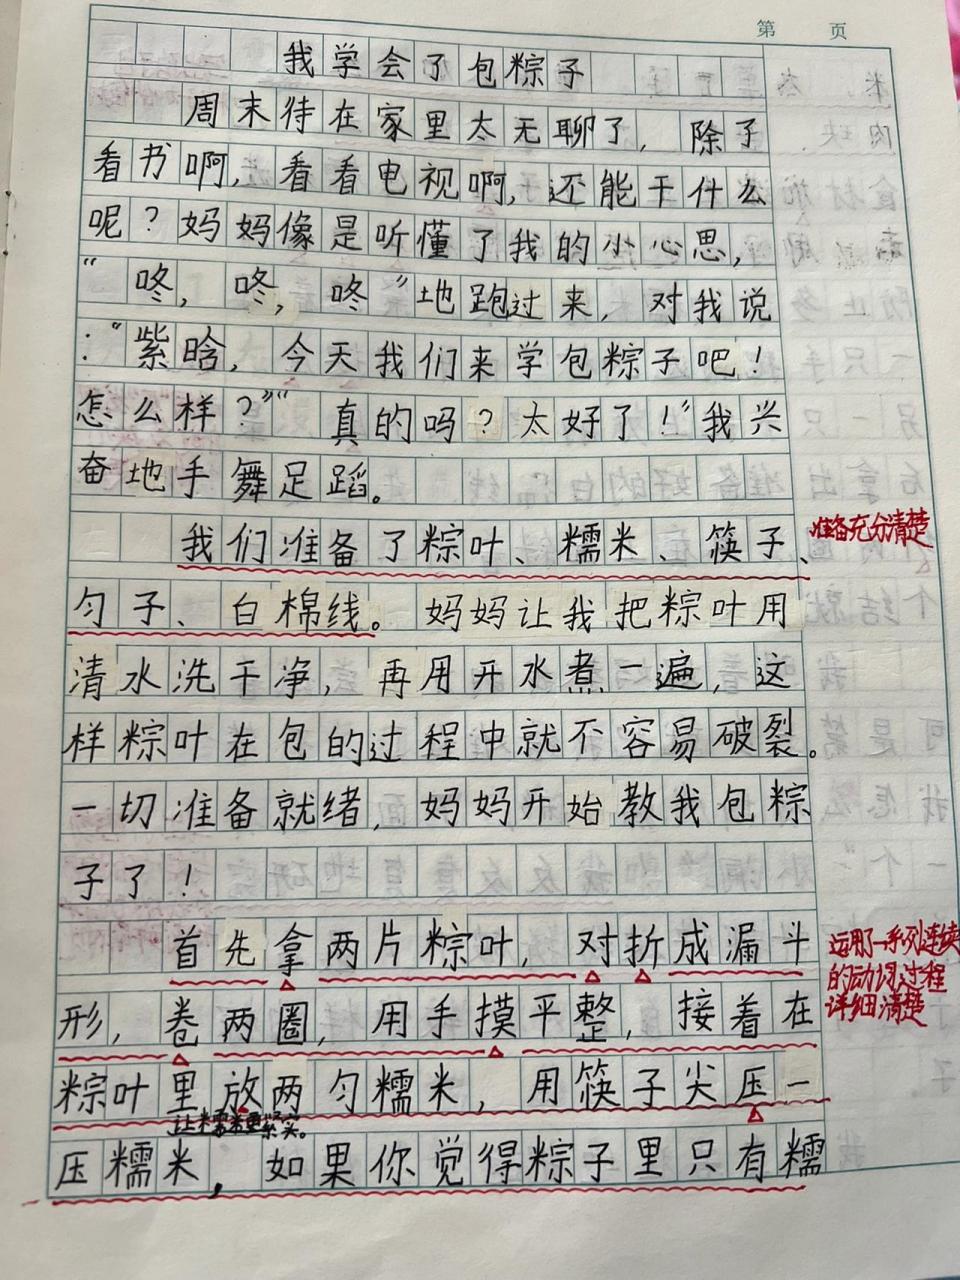 第 页
我学会了包粽子
周末待在家里太无聊了，除了
看书啊，看看电视啊，还能干什么
呢？妈妈像是听懂了我的小心思，
“咚，咚，咚”地跑过来，对我说
：“紫晗，今天我们来学包粽子吧！
怎么样？”“真的吗？太好了！”我兴
奋地手舞足蹈。
我们准备了粽叶、糯米、筷子、
准备充分清楚
匀子、白棉线。妈妈让我把粽叶用
清水洗干净，再用开水煮一遍，这
样粽叶在包的过程中就不容易破裂。
一切准备就绪，妈妈开始教我包粽
子了！
首先拿两片粽叶，对折成漏斗
运用了一系列连续
的动词，过程
详细清楚
形，卷两圈，用手摸平整，接着在
粽叶里放两匀糯米，用筷子尖压一
让糯米更紧实。
压糯米，如果你觉得粽子里只有糯